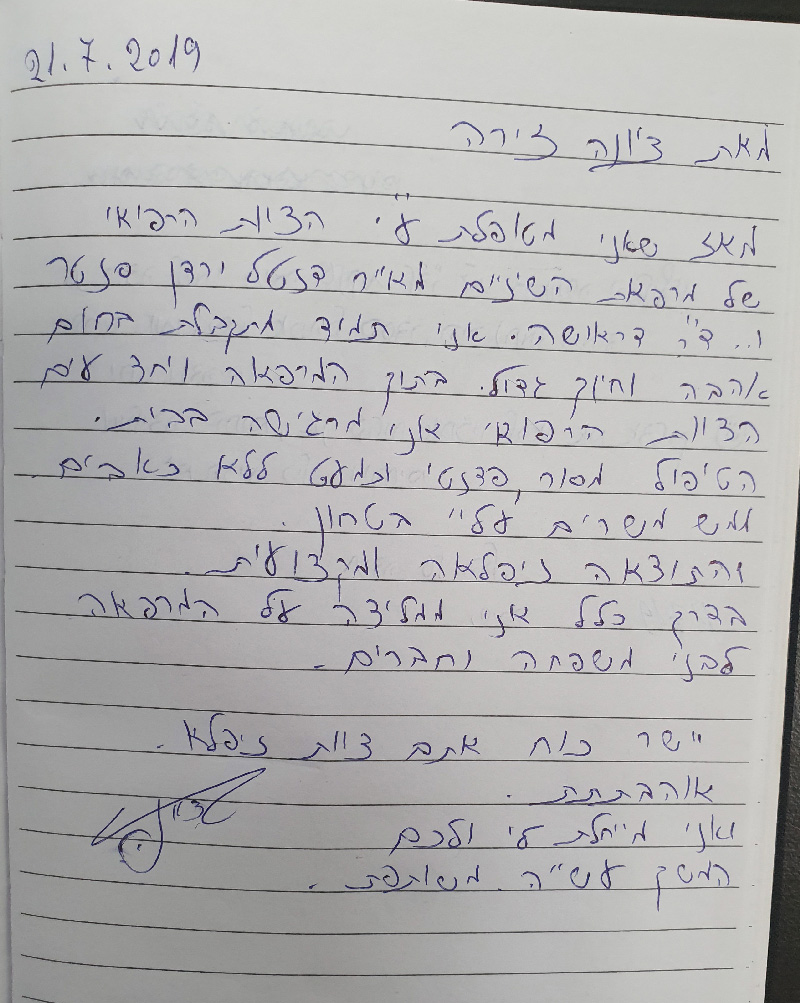 21.7.2019
מאת ציונה זירה
מאז שאני מטופלת ע"י הצוות הרפואי
של מרפאת השיניים מא"ח דנטל ירדן סנטר
ו.. ד"ר דראושה. אני תמיד מתקבלת בחום
אהבה וחיוך גדול. בתוך המרפאה ויחד עים
הצוות הרפואי אני מרגישה בבית.
הטיפול מסור, עדין וכמעט ללא כאבים
ממש משרים עליי בטחון.
והתוצאה ניפלאה ומקצועית.
בדרך כלל אני ממליצה על המרפאה
לבני משפחה וחברים.
יישר כוח אתם צוות ניפלא.
אוהבתתת.
ואני מייחלת לי ולכם
המשך עש"ה משותפת.